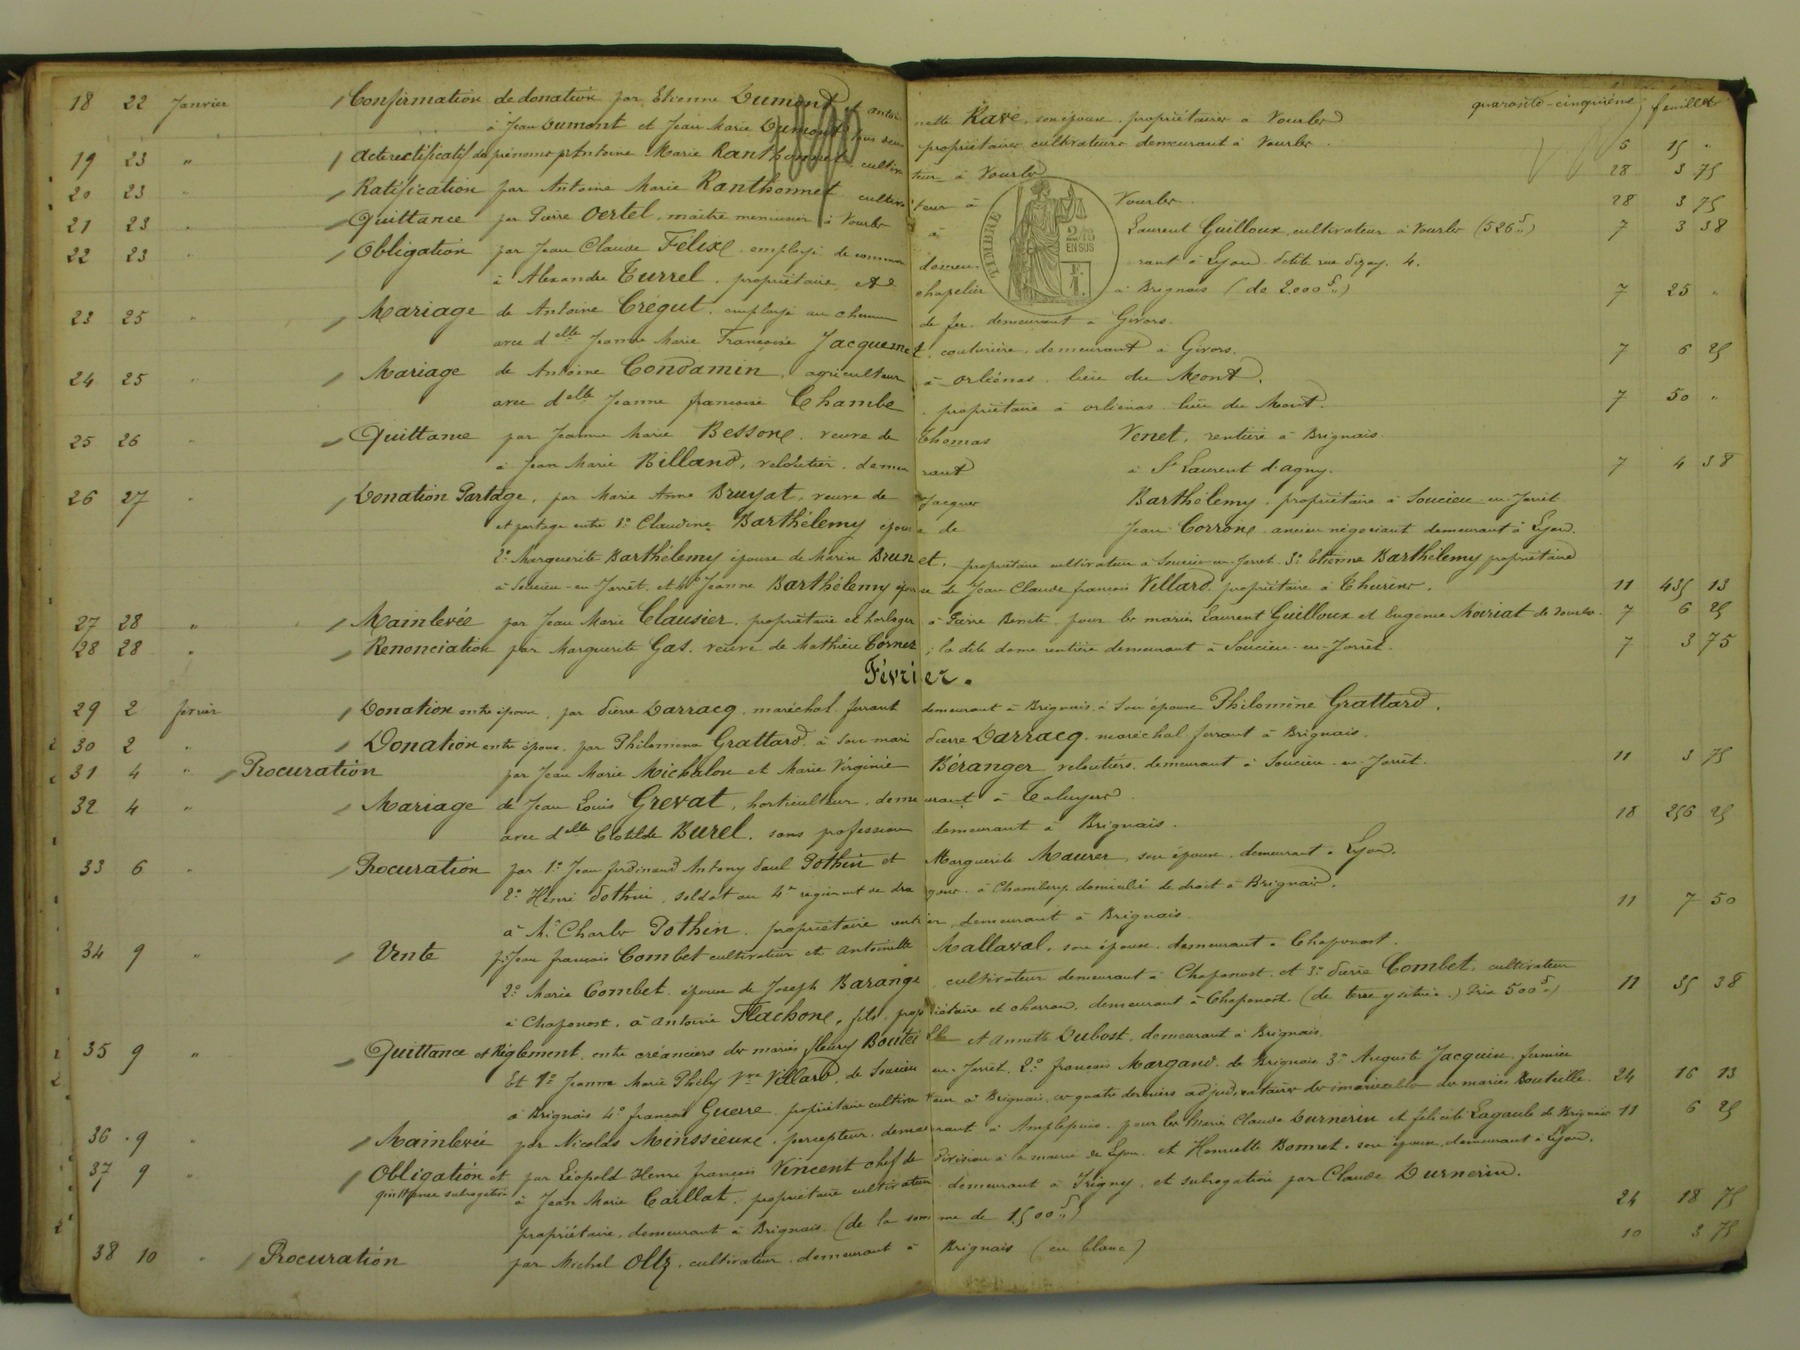 quarante-cinquième feuillet
18 22 Janvier Confirmation de donation par Etienne Dumond et Antoinette Ravé, son épouse, propriétaires à Vourles
à Jean Dumont et Jean Marie Dumont tous deux propriétaires cultivateurs demeurant à Vourles. 5 15 "
19 23 " Acte rectificatif de prénoms p. Antoine Marie Ranthonnet cultivateur à Vourles 28 3 75
20 23 " Ratification par Antoine Marie Ranthonnet cultivateur à Vourles. 28 3 75
21 23 " Quittance par Pierre Oertel, maître menuisier à Vourles à Laurent Guilloux, cultivateur à Vourles (526 f) 7 3 38
TIMBRE 2/10 EN SUS
22 23 " Obligation par Jean Claude Félix, employé de commerce demeurant à Lyon petite rue 4.
à Alexandre Turrel, propriétaire et chapelier à Brignais (de 2.000 f) 7 25 "
23 25 " Mariage de Antoine Crégut, employé au chemin de fer, demeurant à Givors.
avec delle Jeanne Marie Françoise Jacquemet, couturière, demeurant à Givors. 7 6 25
24 25 " Mariage de Antoine Condamin, agriculteur à Orliénas, lieu du Mont.
avec delle Jeanne françoise Chambe, propriétaire à orlienas lieu du Mont. 7 50 "
25 26 " Quittance par Jeanne Marie Besson, veuve de Thomas Venet, rentière à Brignais.
à Jean Marie Billand, veloutier, demeurant à St Laurent d'agny. 7 4 38
26 27 " Donation Partage, par Marie Anne Bruyat, veuve de Jacques Barthélemy, propriétaire à Soucieu-en-Jarret
et partage entre 1° Claudine Barthélemy épouse de Jean Corron, ancien négociant demeurant à Lyon.
2° Marguerite Barthélemy épouse de Marin Brunet, propriétaire cultivateur à Soucieu-en-Jarret 3° Etienne Barthélemy propriétaire
à Soucieu-en-Jarrêt, et 4° Jeanne Barthélemy épouse de Jean Claude françois Villard, propriétaire à Thurins. 11 435 13
27 28 " Mainlevée par Jean Marie Clausier, propriétaire et horloger à Pierre Benite, pour les mariés Laurent Guilloux et Eugénie Moiriat de Vourles. 7 6 25
28 28 " Renonciation par Marguerite Gas, veuve de Mathieu Cornet; la dite dame rentière demeurant à Soucieu-en-Jarrêt. 7 3 75
Février.
29 2 février Donation entre époux, par Pierre Darracq, maréchal ferrant demeurant à Brignais à son épouse Philomène Grattard.
30 2 " Donation entre époux, par Philomène Grattard à son mari Pierre Darracq, maréchal ferrant à Brignais.
31 4 " Procuration par Jean Marie Michalon et Marie Virginie Béranger veloutiers, demeurant à Soucieu-en-Jarrêt. 11 3 75
32 4 " Mariage de Jean Louis Grevat, horticulteur, demeurant à Taluyers
avec delle Clotilde Burel, sans profession demeurant à Brignais. 18 256 25
33 6 " Procuration par 1° Jean ferdinand Antony Paul Pothin et Marguerite Maurer, son épouse, demeurant à Lyon.
2° Henri Pothin, soldat au 4e régiment de dragons à Chambery, domicilié de droit à Brignais,
à Mr Charles Pothin, propriétaire rentier, demeurant à Brignais. 11 7 50
34 9 " Vente p. Jean françois Combet cultivateur et Antoinette Mallaval, son épouse, demeurant à Chaponost.
2° Marie Combet, épouse de Joseph Barange cultivateur demeurant à Chaponost, et 3° Pierre Combet, cultivateur
à Chaponost, à Antoine Flachon, fils, propriétaire et charron, demeurant à Chaponost (de terre y située.) Prix 500 f) 11 35 38
35 9 " Quittance et Règlement, entre créanciers des mariés fleury Bouteille et Annette Dubost, demeurant à Brignais.
Et 1° Jeanne Marie Phély Vve Villard, de Soucieu en-Jarrêt, 2° françois Margand de Brignais 3° Auguste Jacquin, fermier
à Brignais 4° françois Guerre, propriétaire cultivateur à Brignais, ces quatre derniers adjudicataires des immeubles des mariés Bouteille. 24 16 13
36 9 " Mainlevée par Nicolas Minssieux, percepteur, demeurant à Amplepuis, pour les mariés Claude Durnerin et felicité Lagaule de Brignais 11 6 25
37 9 " Obligation et quittance subrogative par Léopold Henri françois Vincent chef de Division à la mairie de Lyon et Henriette Bonnet, son épouse, demeurant à Lyon.
à Jean Marie Caillat, propriétaire cultivateur demeurant à Irigny, et subrogation par Claude Durnerin.
propriétaire, demeurant à Brignais. (de la somme de 1,500 f) 24 18 75
38 10 " Procuration par Michel Oltz, cultivateur, demeurant à Brignais (en blanc) 10 3 75